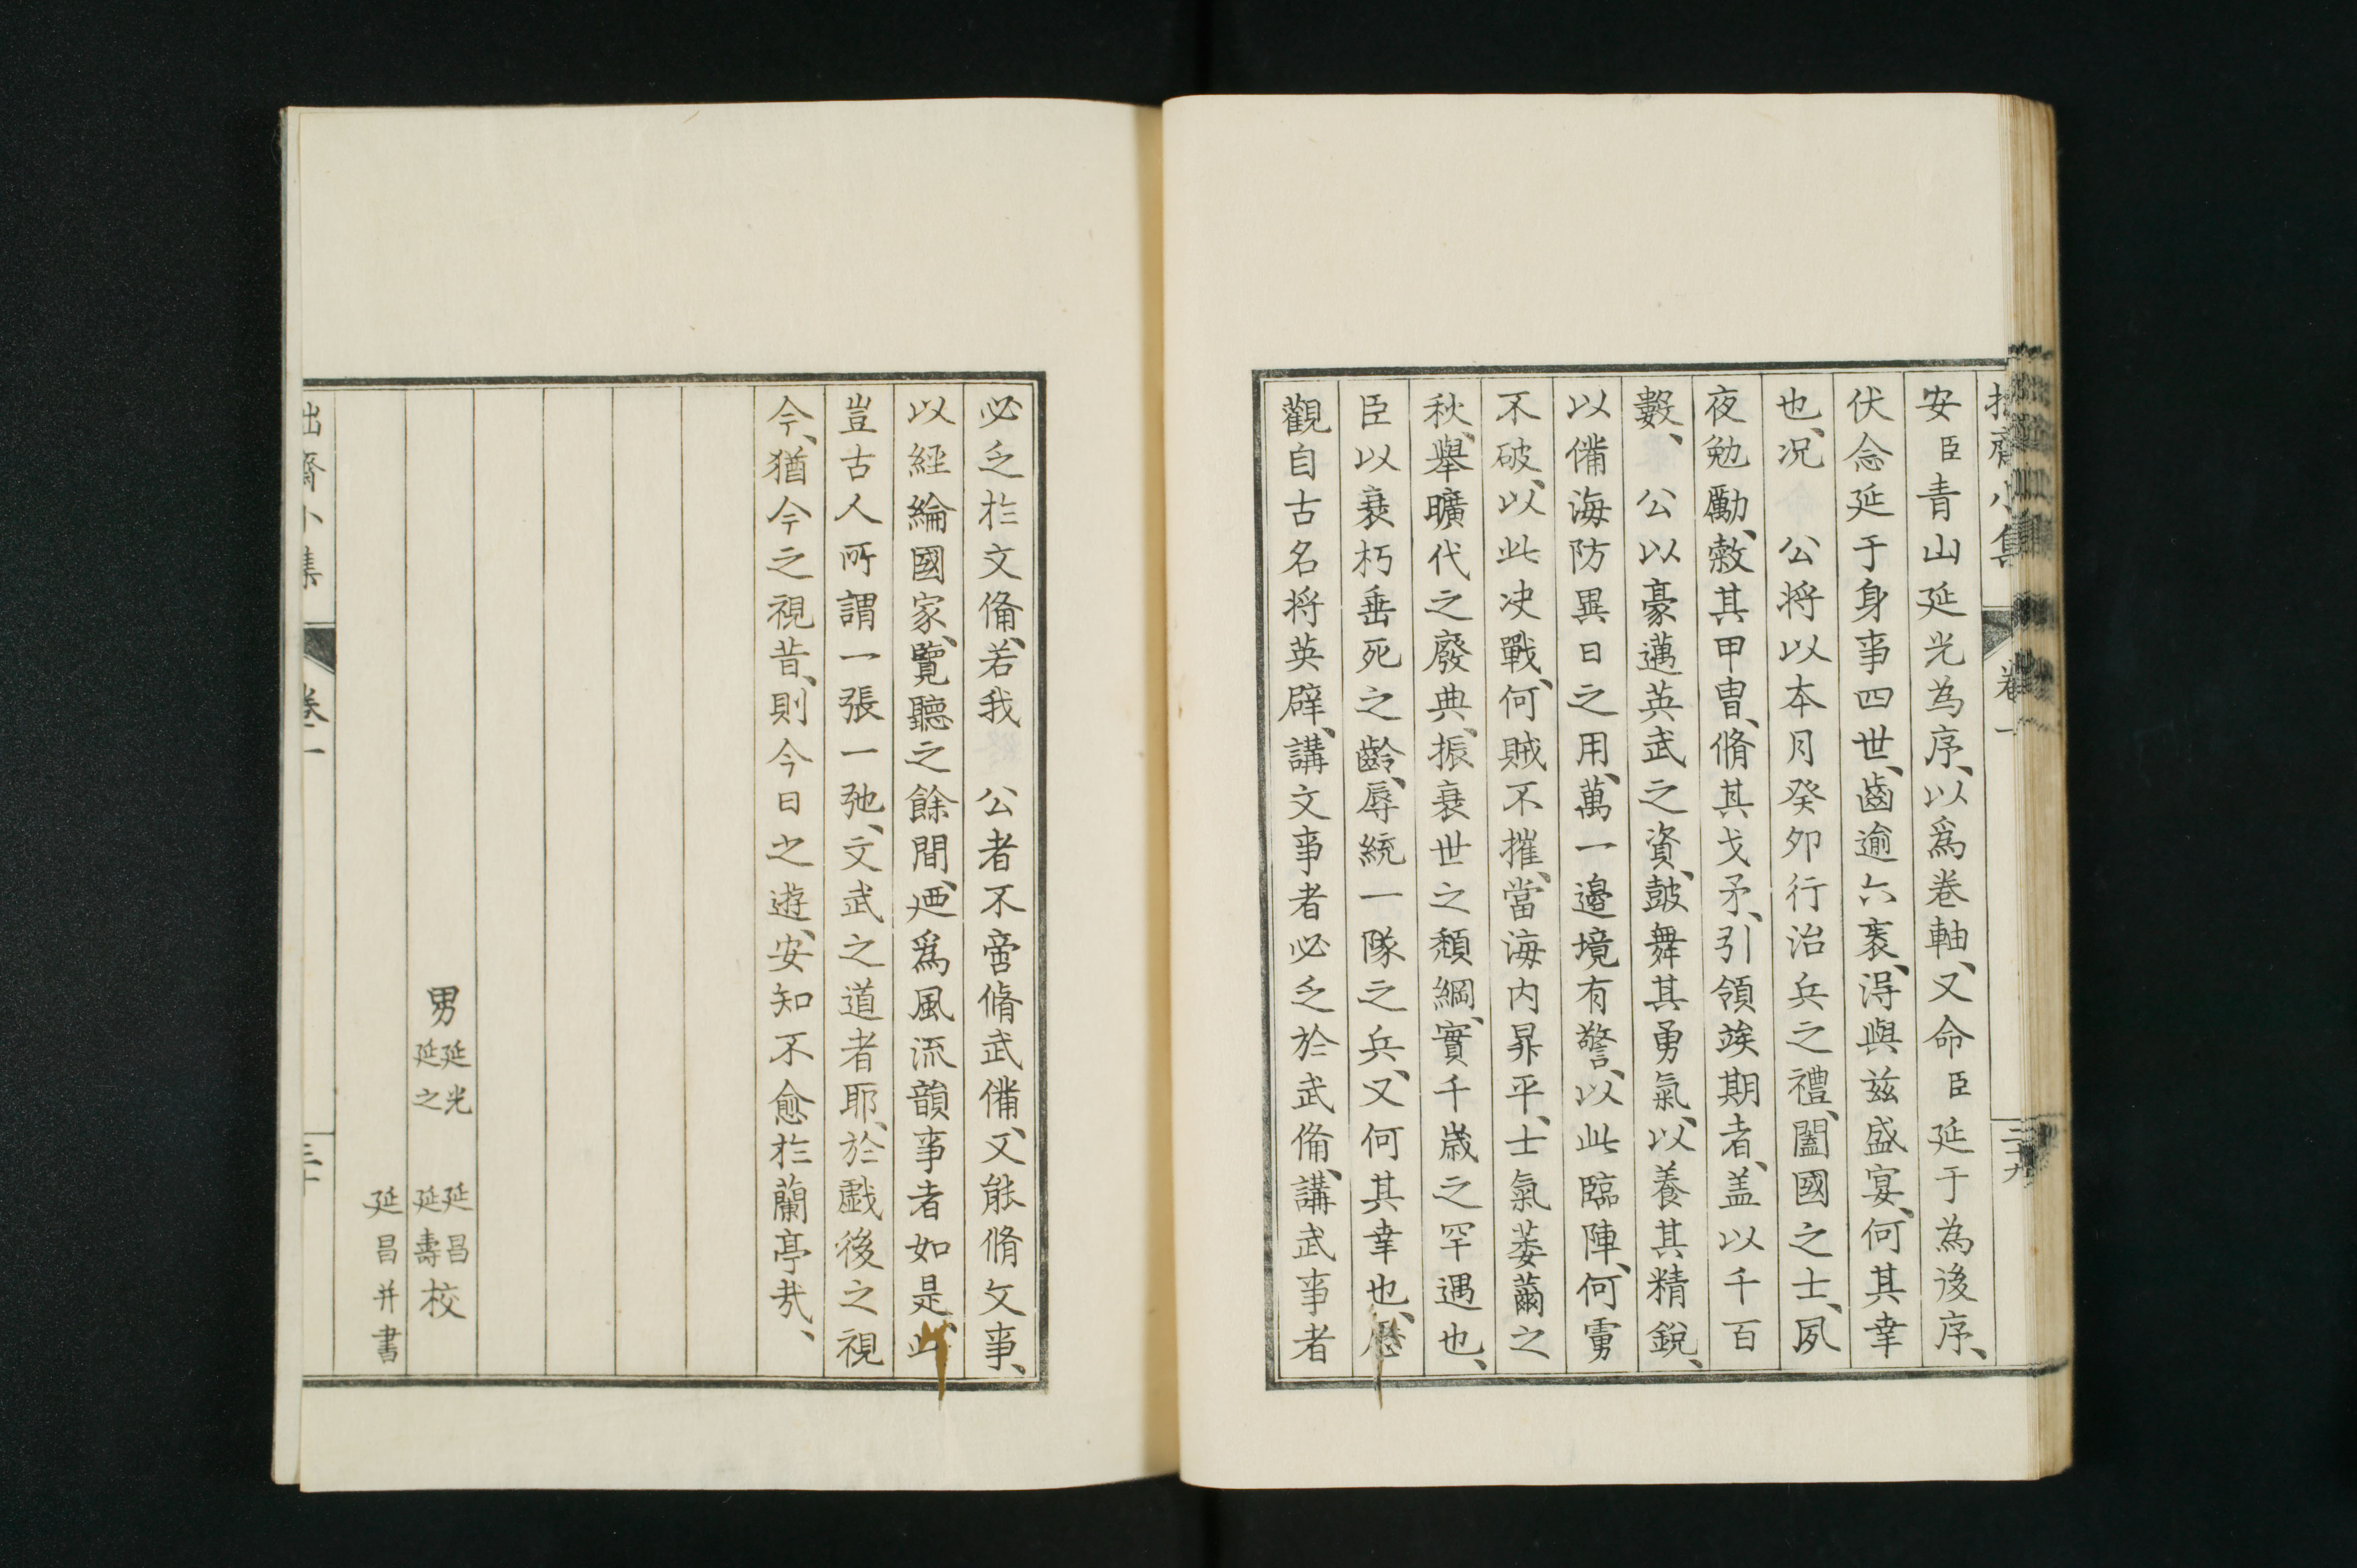 拙齋小集 卷一 二十九
安臣青山延光為序、以爲卷軸、又命臣延于為後序、
伏念延于身事四世、齒逾六袠、得與玆盛宴、何其幸
也、況 公將以本月癸夘行治兵之禮、闔國之士、夙
夜勉勵、敹其甲冑、脩其戈矛、引領竢期者、盖以千百
數、 公以豪邁英武之資、鼓舞其勇氣、以養其精銳、
以備海防異日之用、萬一邊境有警、以此臨陣、何虜
不破、以此决戰、何賊不摧、當海内昇平、士氣萎薾之
秋、舉曠代之廢典、振衰世之頽綱、實千歲之罕遇也、
臣以衰朽垂死之齡、辱統一隊之兵、又何其幸也、歷
觀自古名将英辟、講文事者必乏於武備、講武事者
必乏於文備、若我 公者不啻脩武備、又能脩文事、
以經綸國家、覽聽之餘間、迺爲風流韻事者如是、此
豈古人所謂一張一弛、文武之道者耶、於戲後之視
今、猶今之視昔、則今日之遊、安知不愈於蘭亭㦲、
男 延光 延之 延昌 延壽 校
延昌并書
拙齋小集 卷一 三十